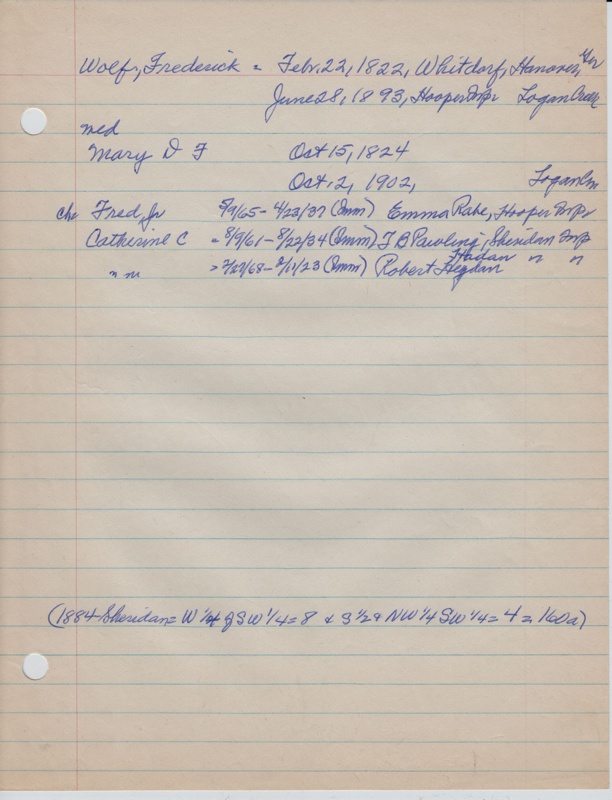 Wolf, Frederick = Febr. 22, 1822, Whitdorf, Hanover, Ger
June 28, 1893, Hooper Twp Logan Creek
med
Mary D F Oct 15, 1824
Oct. 2, 1902, Logan Cm
Chr Fred, Jr 5/9/65 - 4/23/37 (Imm) Emma Rabe, Hooper Twp
Catherine C = 8/9/61 - 8/22/34 (Imm) F B Pawling, Sheridan Twp
" m = 7/27/68 - 2/11/23 (Imm) Robert Hegdan Hadan " "
(1884 Sheridan = W 1/2 of SW 1/4 = 8 & S 1/2 & NW 1/4 SW 1/4 = 4 = 160a)